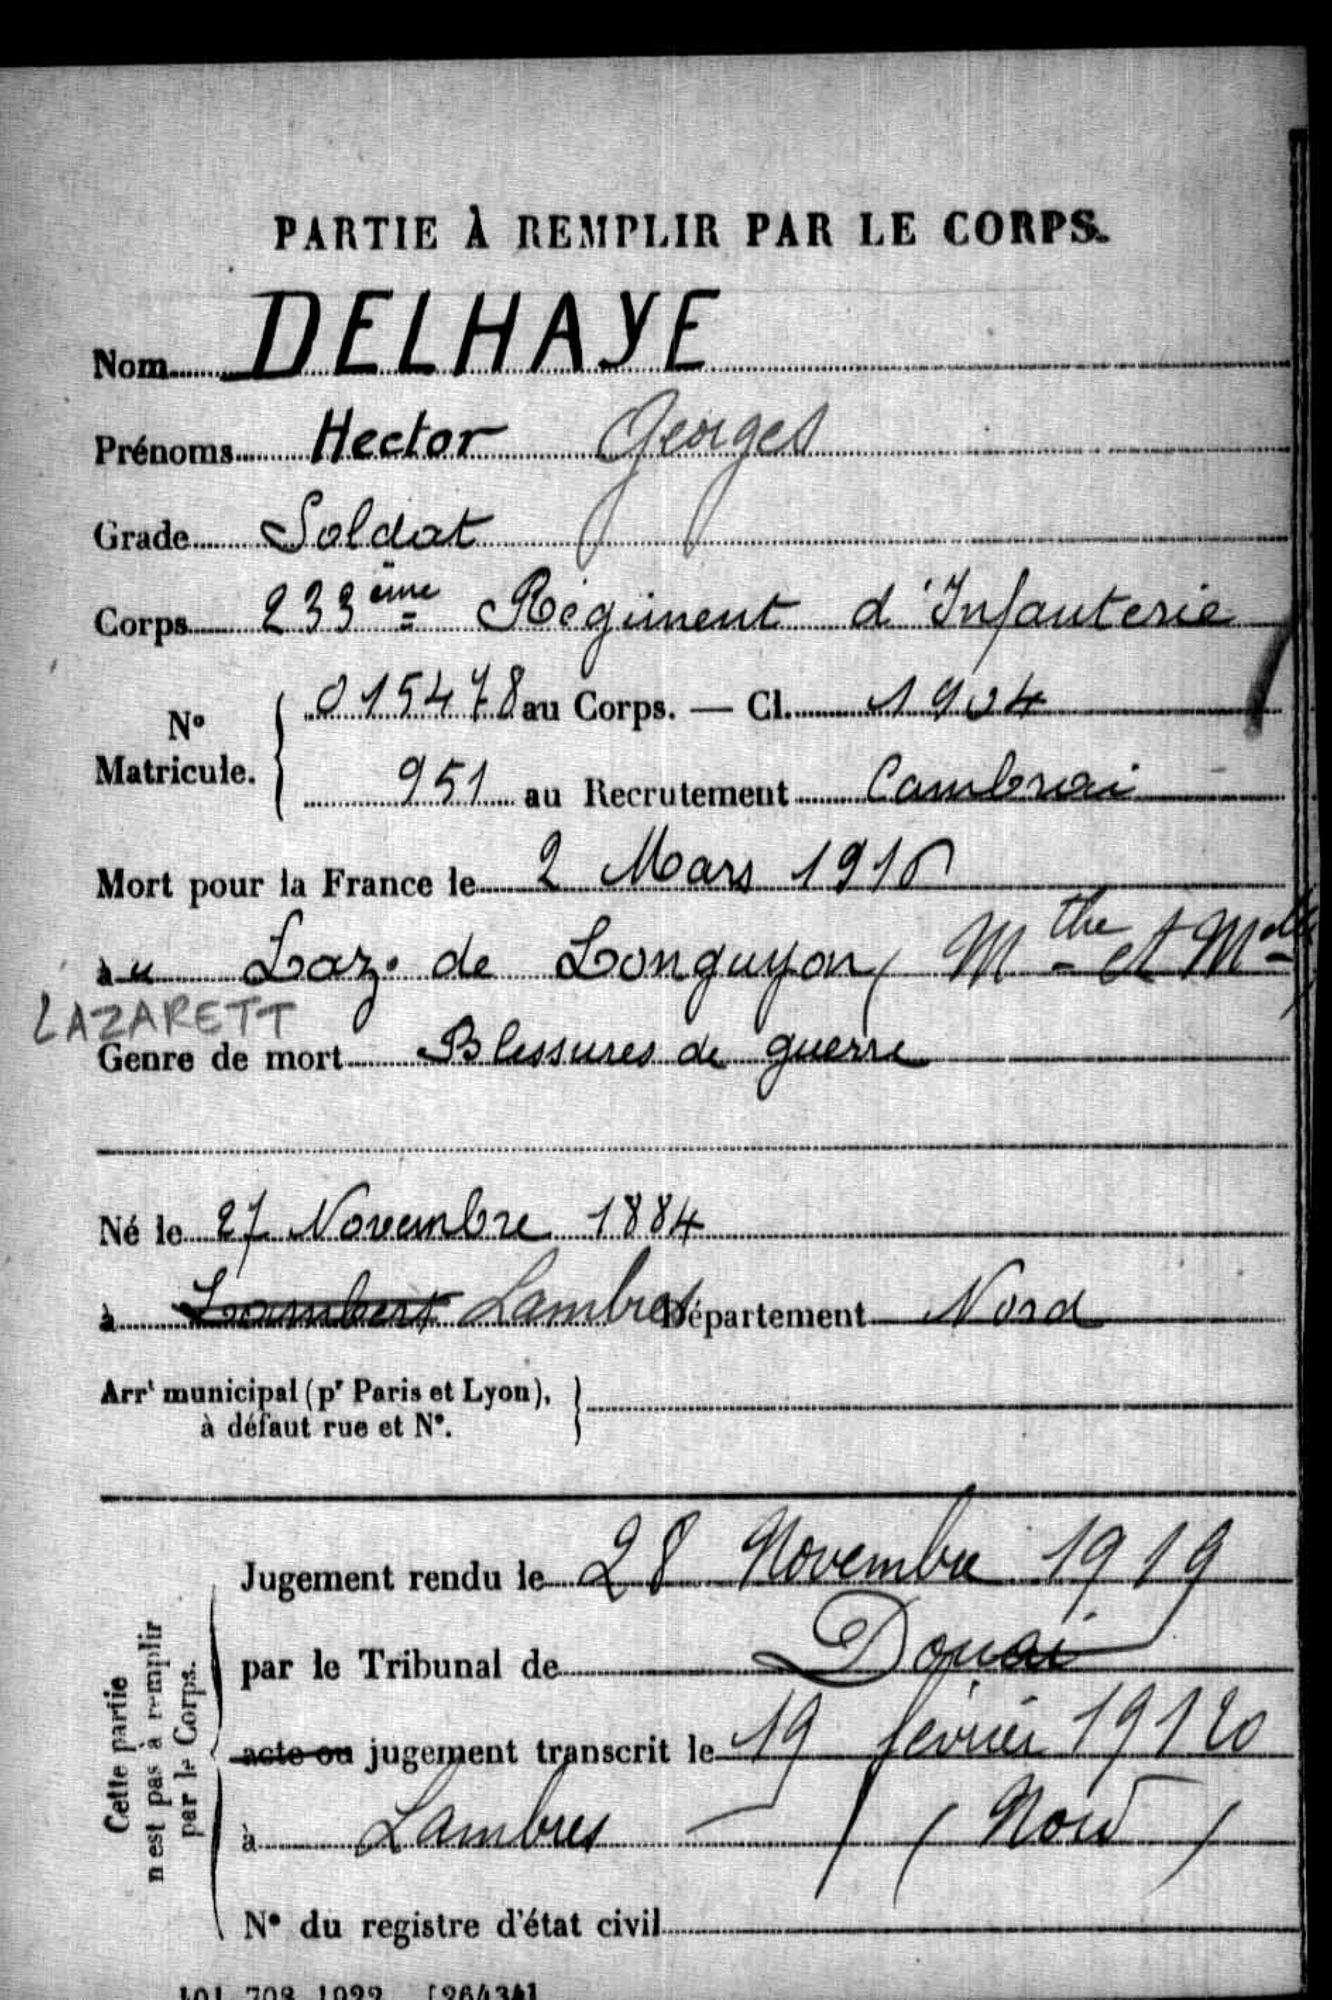 PARTIE À REMPLIR PAR LE CORPS.
Nom DELHAYE
Prénoms Hector Georges
Grade Soldat
Corps 233ème Régiment d'Infanterie
N° Matricule. 015478 au Corps. — Cl. 1904
951 au Recrutement Cambrai
Mort pour la France le 2 Mars 1916
au Laz. de Longuyon (Mthe et Mlle
LAZARETT
Genre de mort Blessures de guerre
Né le 27 Novembre 1884
à Lambert Lambres Département Nord
Arrt municipal (pr Paris et Lyon),
à défaut rue et N°.
Cette partie
n'est pas à remplir
par le Corps.
Jugement rendu le 28 Novembre 1919
par le Tribunal de Douai
acte ou jugement transcrit le 19 février 19120
à Lambres (Nord)
N° du registre d'état civil
101.708.1922. [26434]